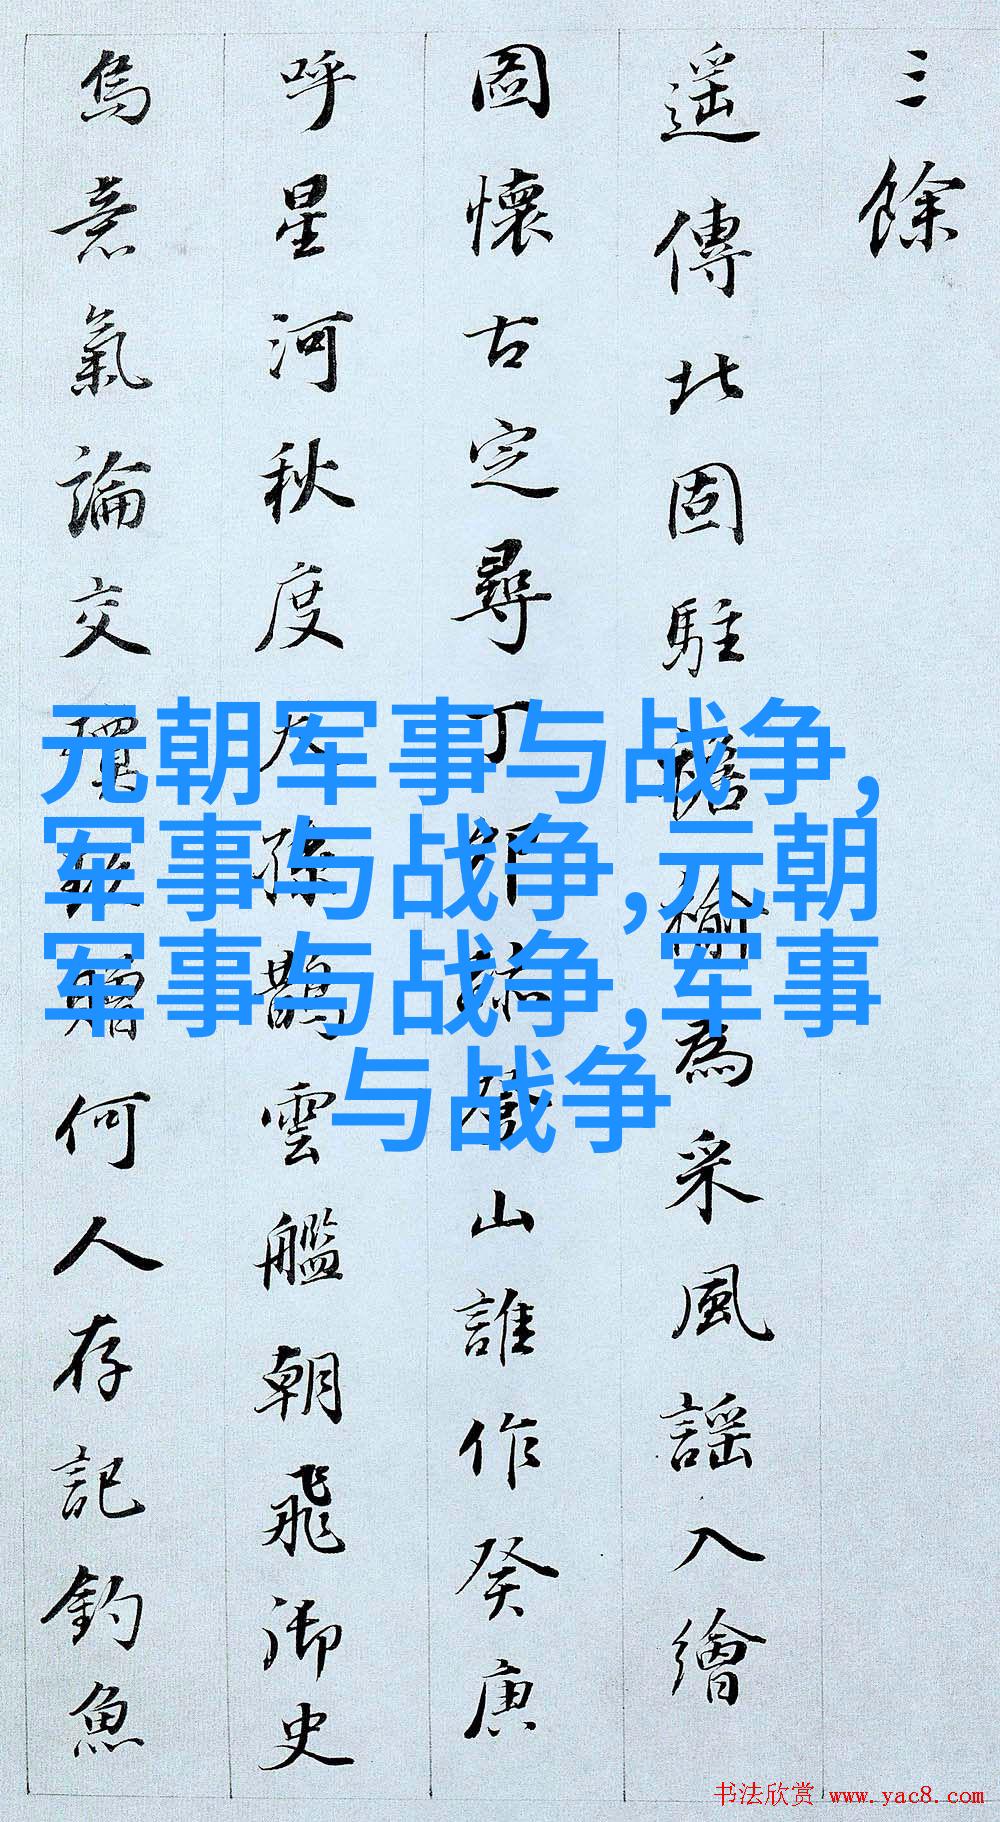 三餘
遥傳北固駐為采風謠入繪
圖懷古定尋丁卯山誰作癸庚
呼星河秋度孫鵲雲艦朝飛御史
烏意氣論交贈何人存記釣魚
元朝军事与战争,
军事与战争,元朝
军事与战争,军事
与战争
书法欣赏 www.yac8.com